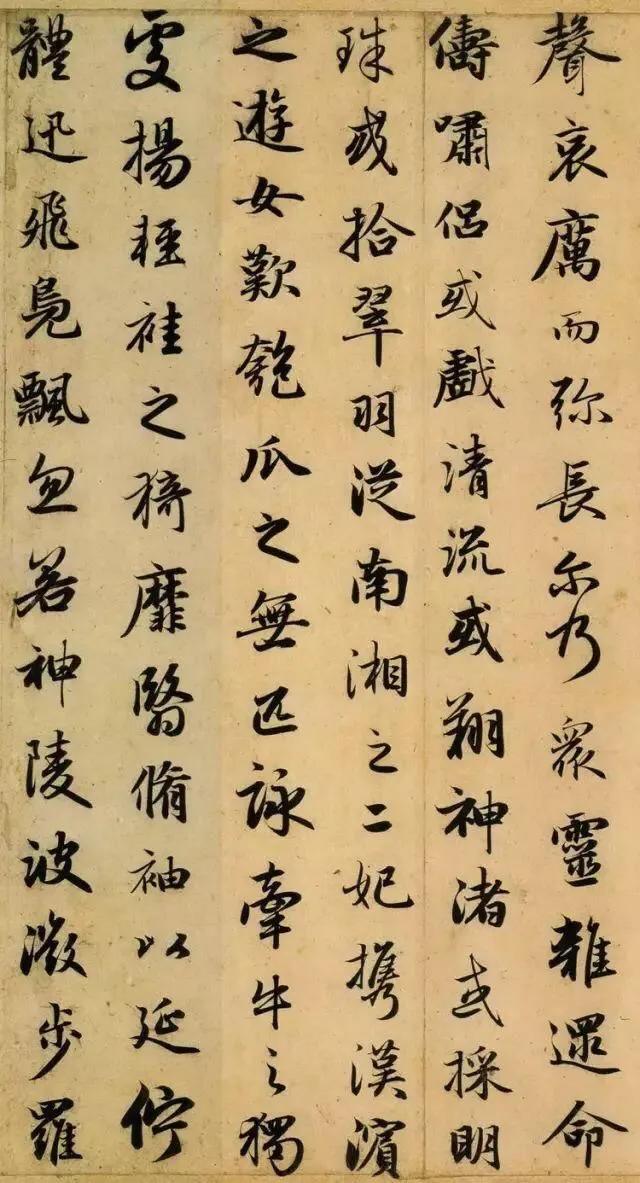 聲哀厲而弥長尔乃衆靈雜遝命
儔嘯侶或戲清流或翔神渚或採明
珠或拾翠羽從南湘之二妃携漢濱
之遊女歎匏瓜之無匹詠牽牛之獨
處揚輕袿之猗靡翳脩袖以延佇
體迅飛鳧飄忽若神陵波微步羅